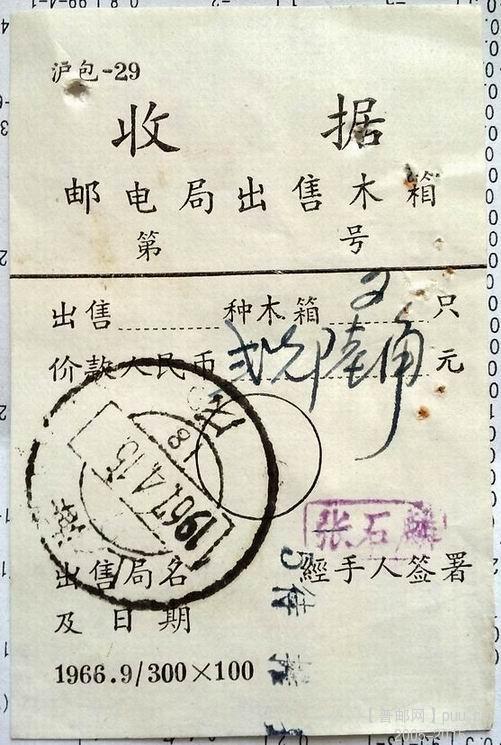 沪包-29
收据
邮电局出售木箱
第 号
出售 种木箱 2 只
价款人民币 弍元陆角 元
1967.4.13
8
张石麟
出售局名 經手人签署
及日期
1966.9/300×100
【普邮网】